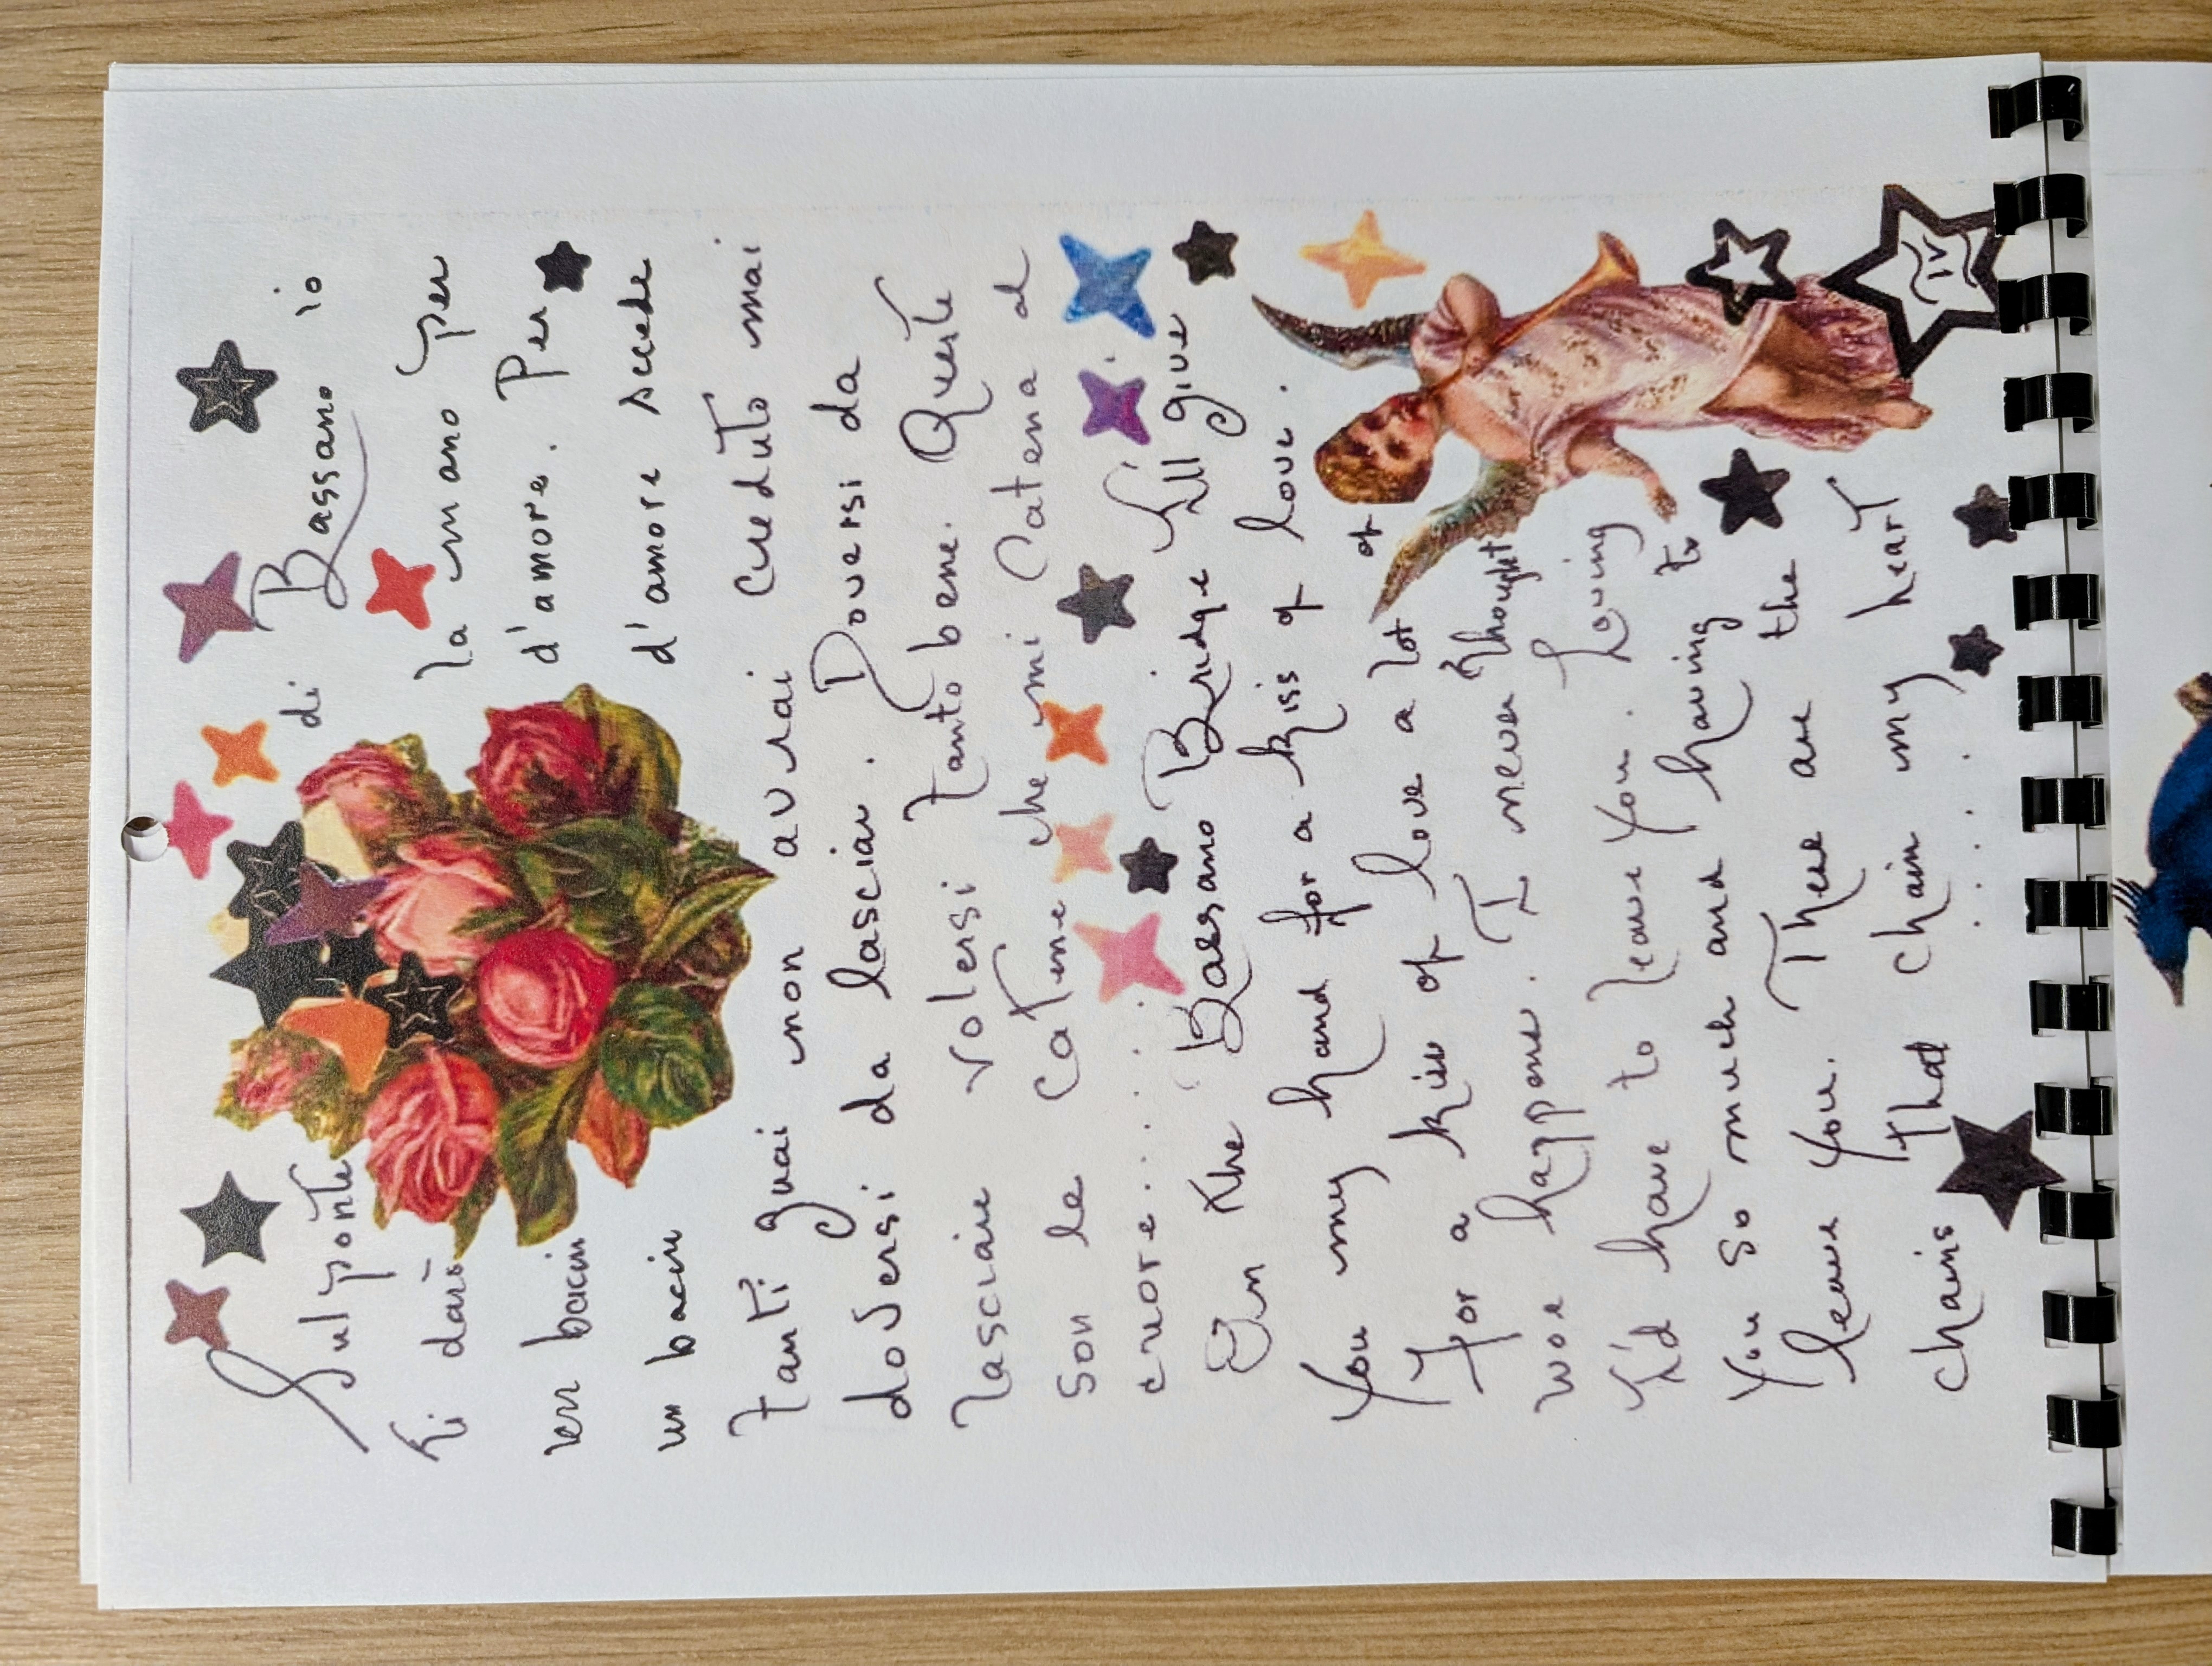 Sul ponte di Bassano io
ti darò la mano per
un bacin d'amore. Per
un bacin d'amore scede
tanti guai non avrai creduto mai
doversi da lasciar. Doversi da
lasciare volersi tanto bene. Queste
son le catene che mi catena el
cuore......
On the Bassano Bridge I'll give
You my hand for a kiss of love.
For a kiss of love a lot of
woe happens. I never thought
I'd have to leave You. Loving
You so much and having to
leave You. These are the
chains that chain my heart
.....
IV